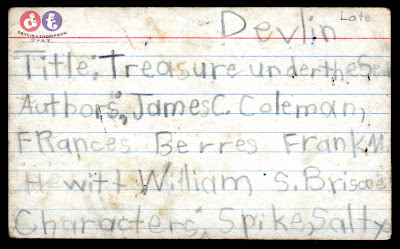 Late
Devlin
dt
DEVLIN&THOMPSON
Title: Treasure under the Sea
Authors; James C. Coleman,
FRances Berres Frank M.
Hewitt William S. Briscoe
Characters; Spike, Salty